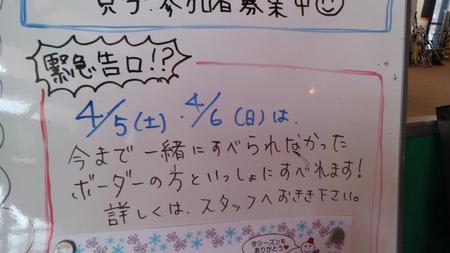 参加者募集中
緊急告口!?
4/5(土)・4/6(日)は、
今まで一緒にすべられなかった
ボーダーの方といっしょにすべれます!
詳しくは、スタッフへおきき下さい。
今シーズンも
ありがとう